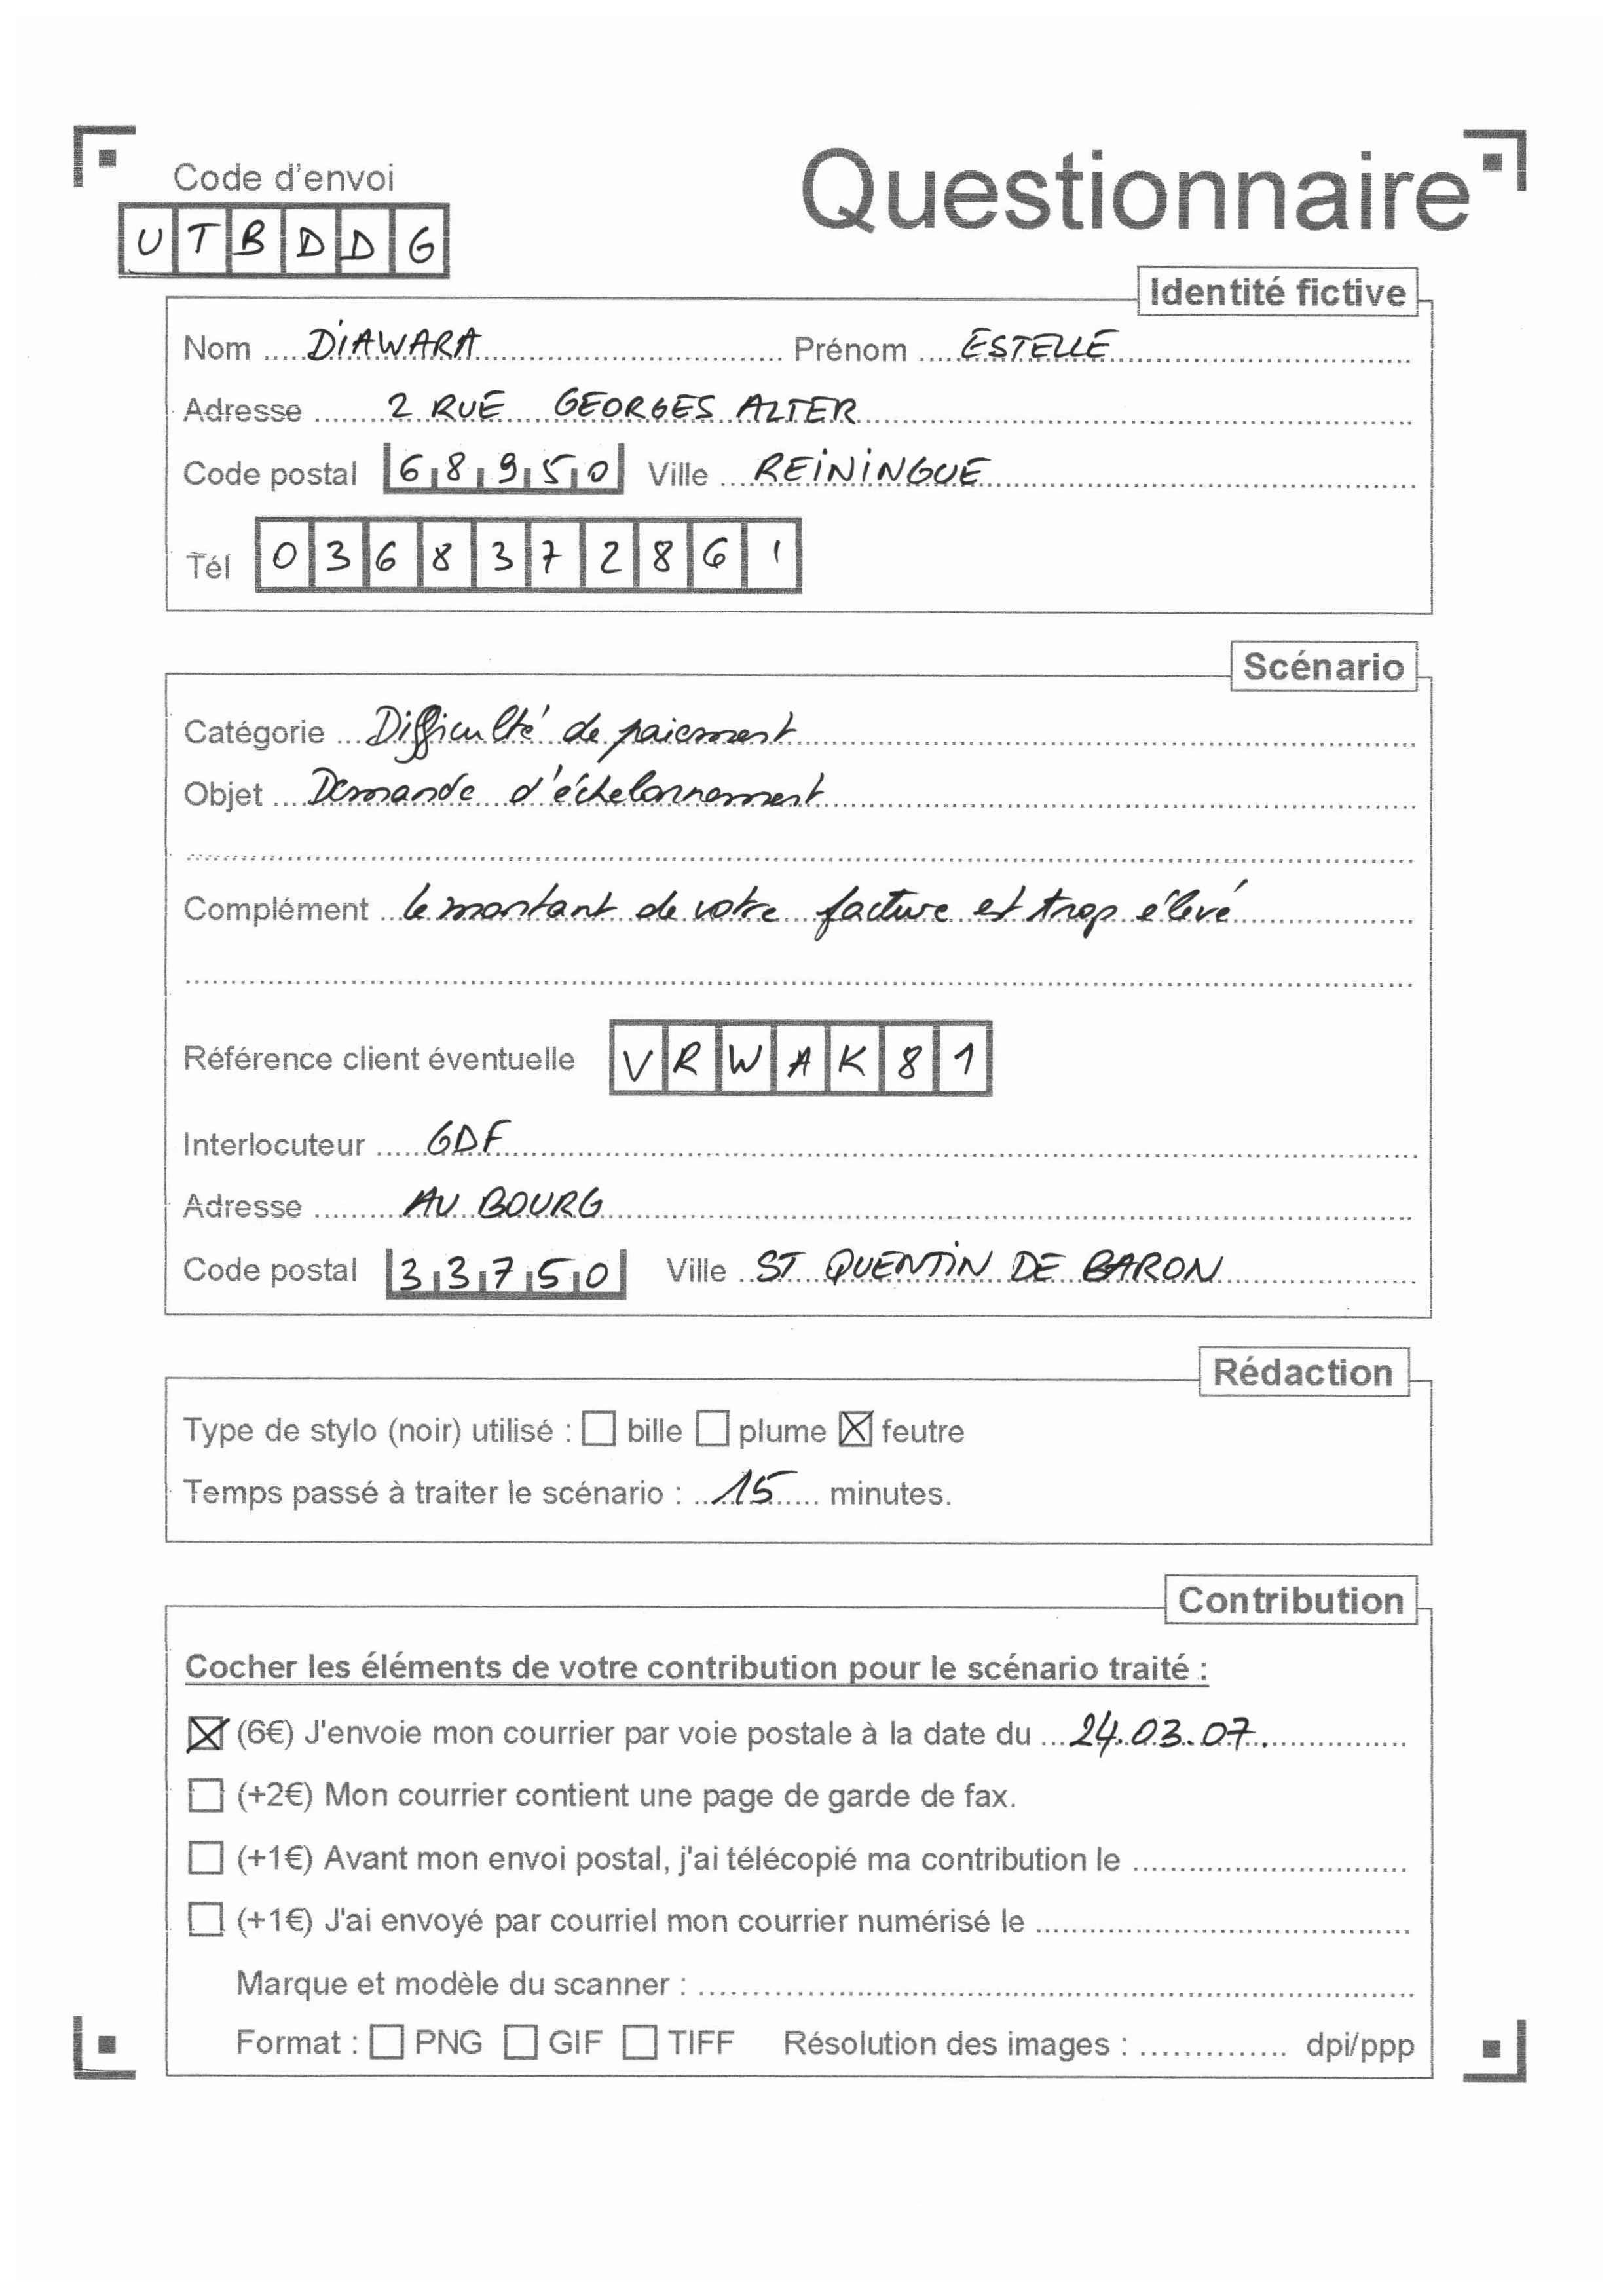 Code d'envoi
UTBDDG
Questionnaire
Identité fictive
Nom DIAWARA Prénom ESTELLE
Adresse 2 RUE GEORGES ALTER
Code postal 68950 Ville REININGUE
Tél 0368372861
Scénario
Catégorie Difficulté de paiement
Objet Demande d'échelonnement
Complément le montant de votre facture est trop élevé
Référence client éventuelle VRWAK81
Interlocuteur GDF
Adresse AU BOURG
Code postal 33750 Ville ST QUENTIN DE BARON
Rédaction
Type de stylo (noir) utilisé : ☐ bille ☐ plume ☒ feutre
Temps passé à traiter le scénario : 15 minutes.
Contribution
Cocher les éléments de votre contribution pour le scénario traité :
☒ (6€) J'envoie mon courrier par voie postale à la date du 24.03.07.
☐ (+2€) Mon courrier contient une page de garde de fax.
☐ (+1€) Avant mon envoi postal, j'ai télécopié ma contribution le
☐ (+1€) J'ai envoyé par courriel mon courrier numérisé le
Marque et modèle du scanner :
Format : ☐ PNG ☐ GIF ☐ TIFF Résolution des images : dpi/ppp